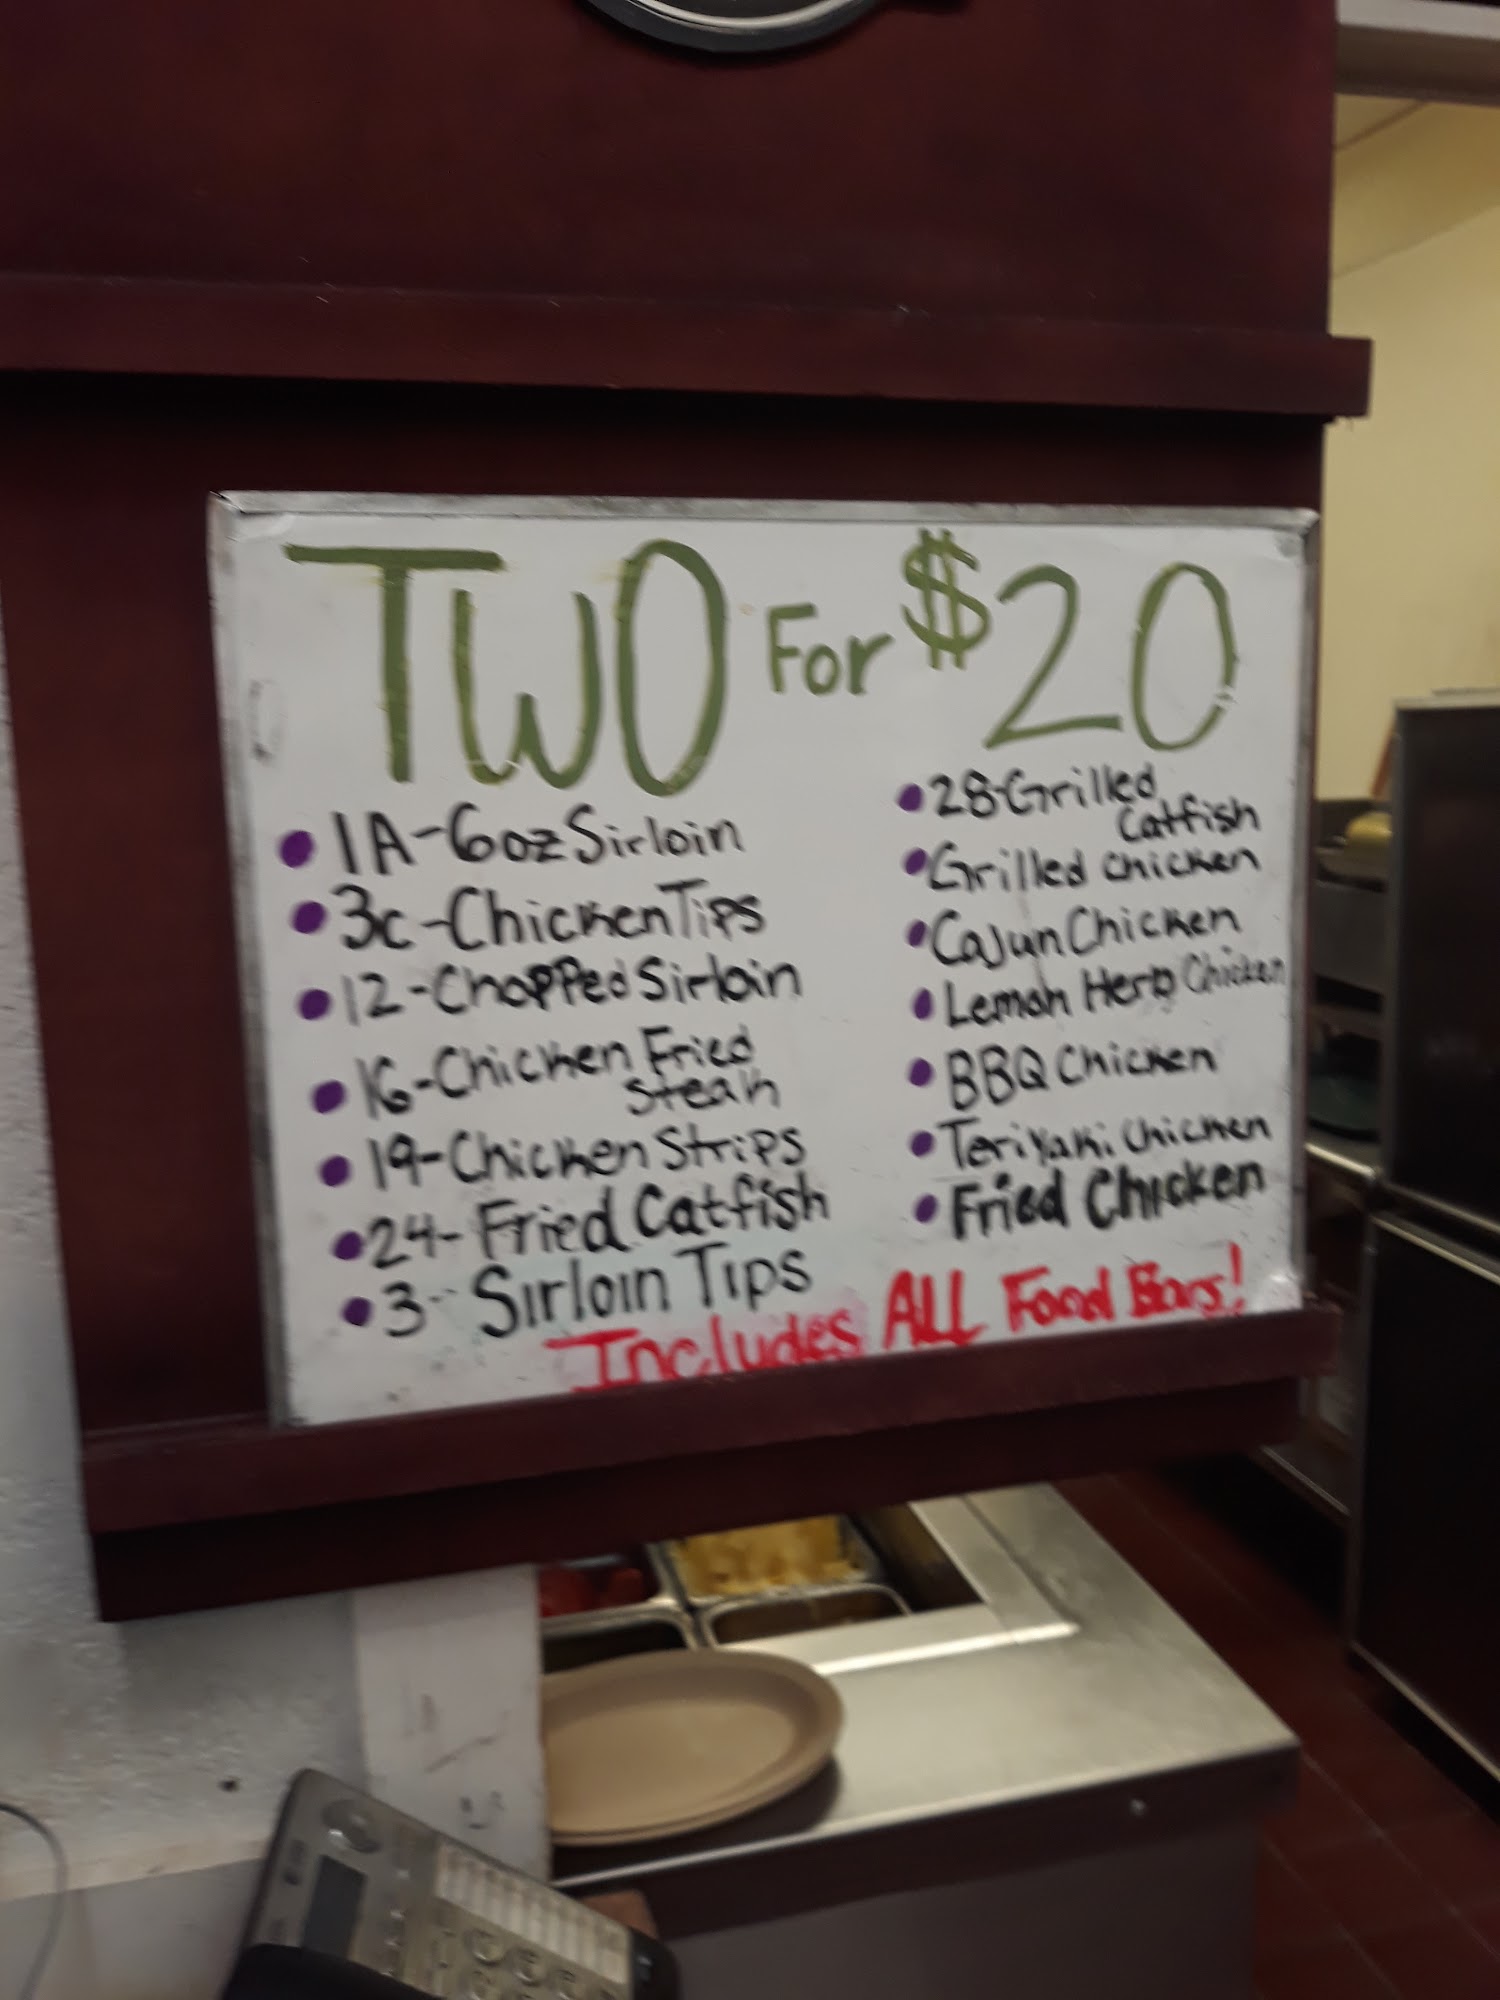 TWO For $20
• 1A-6oz Sirloin
• 3c-Chicken Tips
• 12-Chopped Sirloin
• 16-Chicken Fried
Steak
• 19-Chicken Strips
• 24- Fried Catfish
• 3- Sirloin Tips
• 28-Grilled
Catfish
• Grilled chicken
• Cajun Chicken
• Lemon Herb Chicken
• BBQ Chicken
• Teriyaki Chicken
• Fried Chicken
Includes ALL Food Bars!